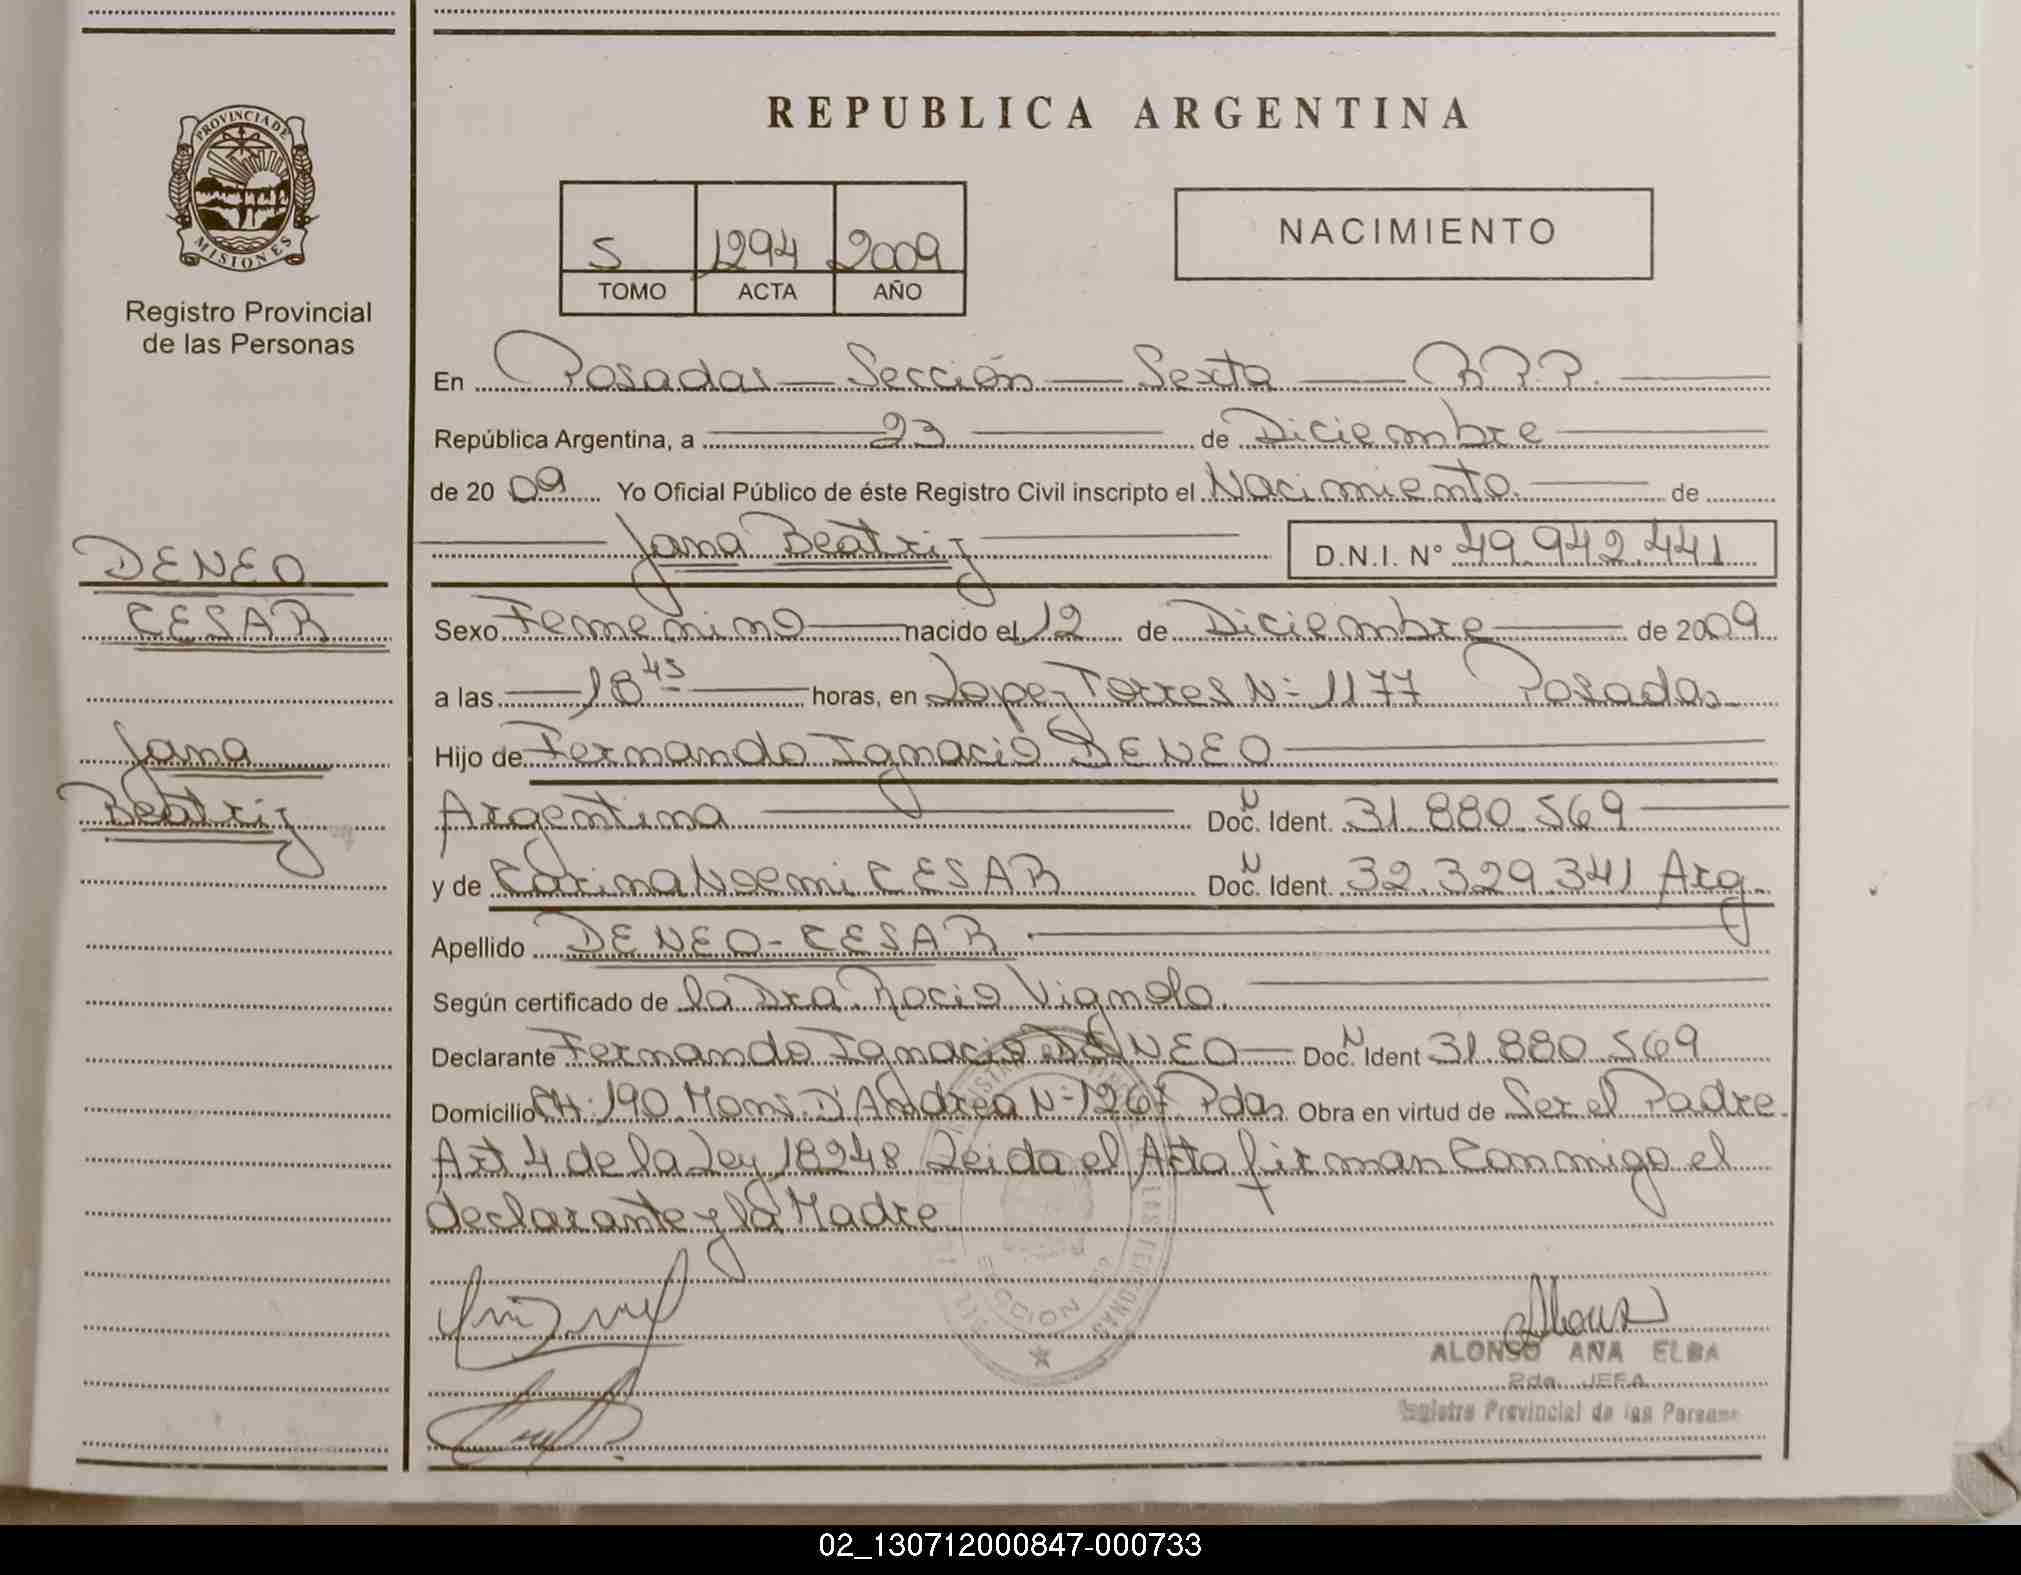 PROVINCIA DE
MISIONES
Registro Provincial
de las Personas
DENEO
CESAR
Jana
Beatriz
REPUBLICA ARGENTINA
5 1294 2009
TOMO ACTA AÑO
NACIMIENTO
En Posadas - Sección - Sexta - R.P.P.
República Argentina, a 23 de Diciembre
de 2009 Yo Oficial Público de éste Registro Civil inscripto el Nacimiento. de
Jana Beatriz D.N.I. N° 49.942.441
Sexo Femenino nacido el 12 de Diciembre de 2009
a las 18 45 horas, en Lopez Torres N° 1177 Posadas
Hijo de Fernando Ignacio DENEO
Argentina N Doc. Ident. 31.880.569
y de Carina Noemi CESAR N Doc. Ident. 32.329.341 Arg.
Apellido DENEO - CESAR
Según certificado de la Dra. Rocio Vignolo.
Declarante Fernando Ignacio DENEO N Doc. Ident 31.880.569
Domicilio CH. 190 Mons. D'Andrea N° 1267 Pdas Obra en virtud de Ser el Padre.
Art. 4 de la Ley 18248 Leida el Acta firman Conmigo el
declarante y la Madre
SECCION
ALONSO ANA ELBA
2da. JEFA
Registro Provincial de las Personas
02_130712000847-000733